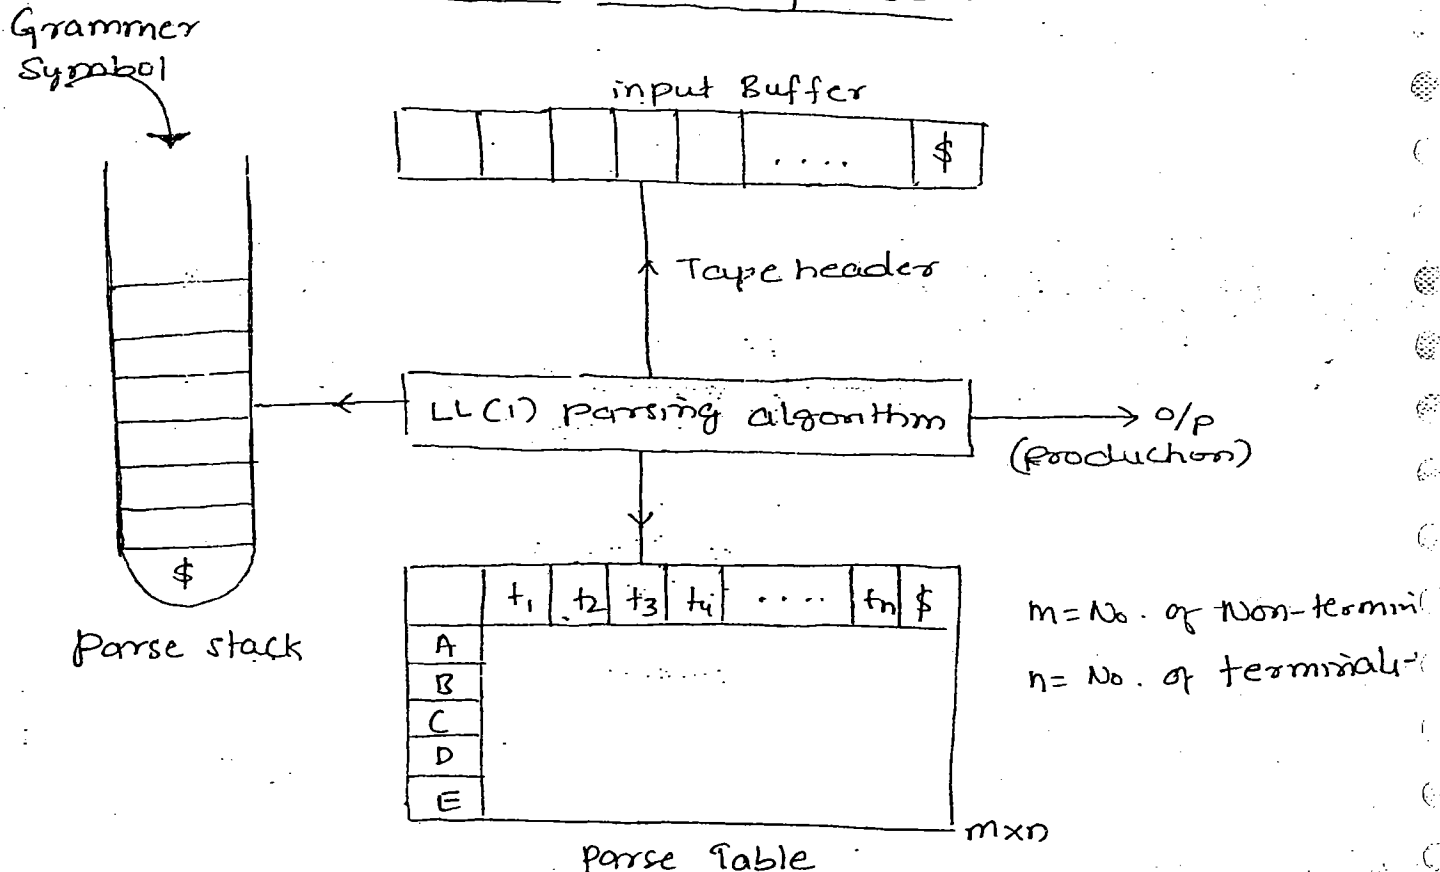 Grammer
Symbol
input Buffer
.... $
Tape header
LL(1) parsing algorithm
o/p
(production)
$
Parse stack
t1 t2 t3 t4 .... tn $
A
B
C
D
E
m = No. of Non-termin
n = No. of terminals
m×n
parse Table